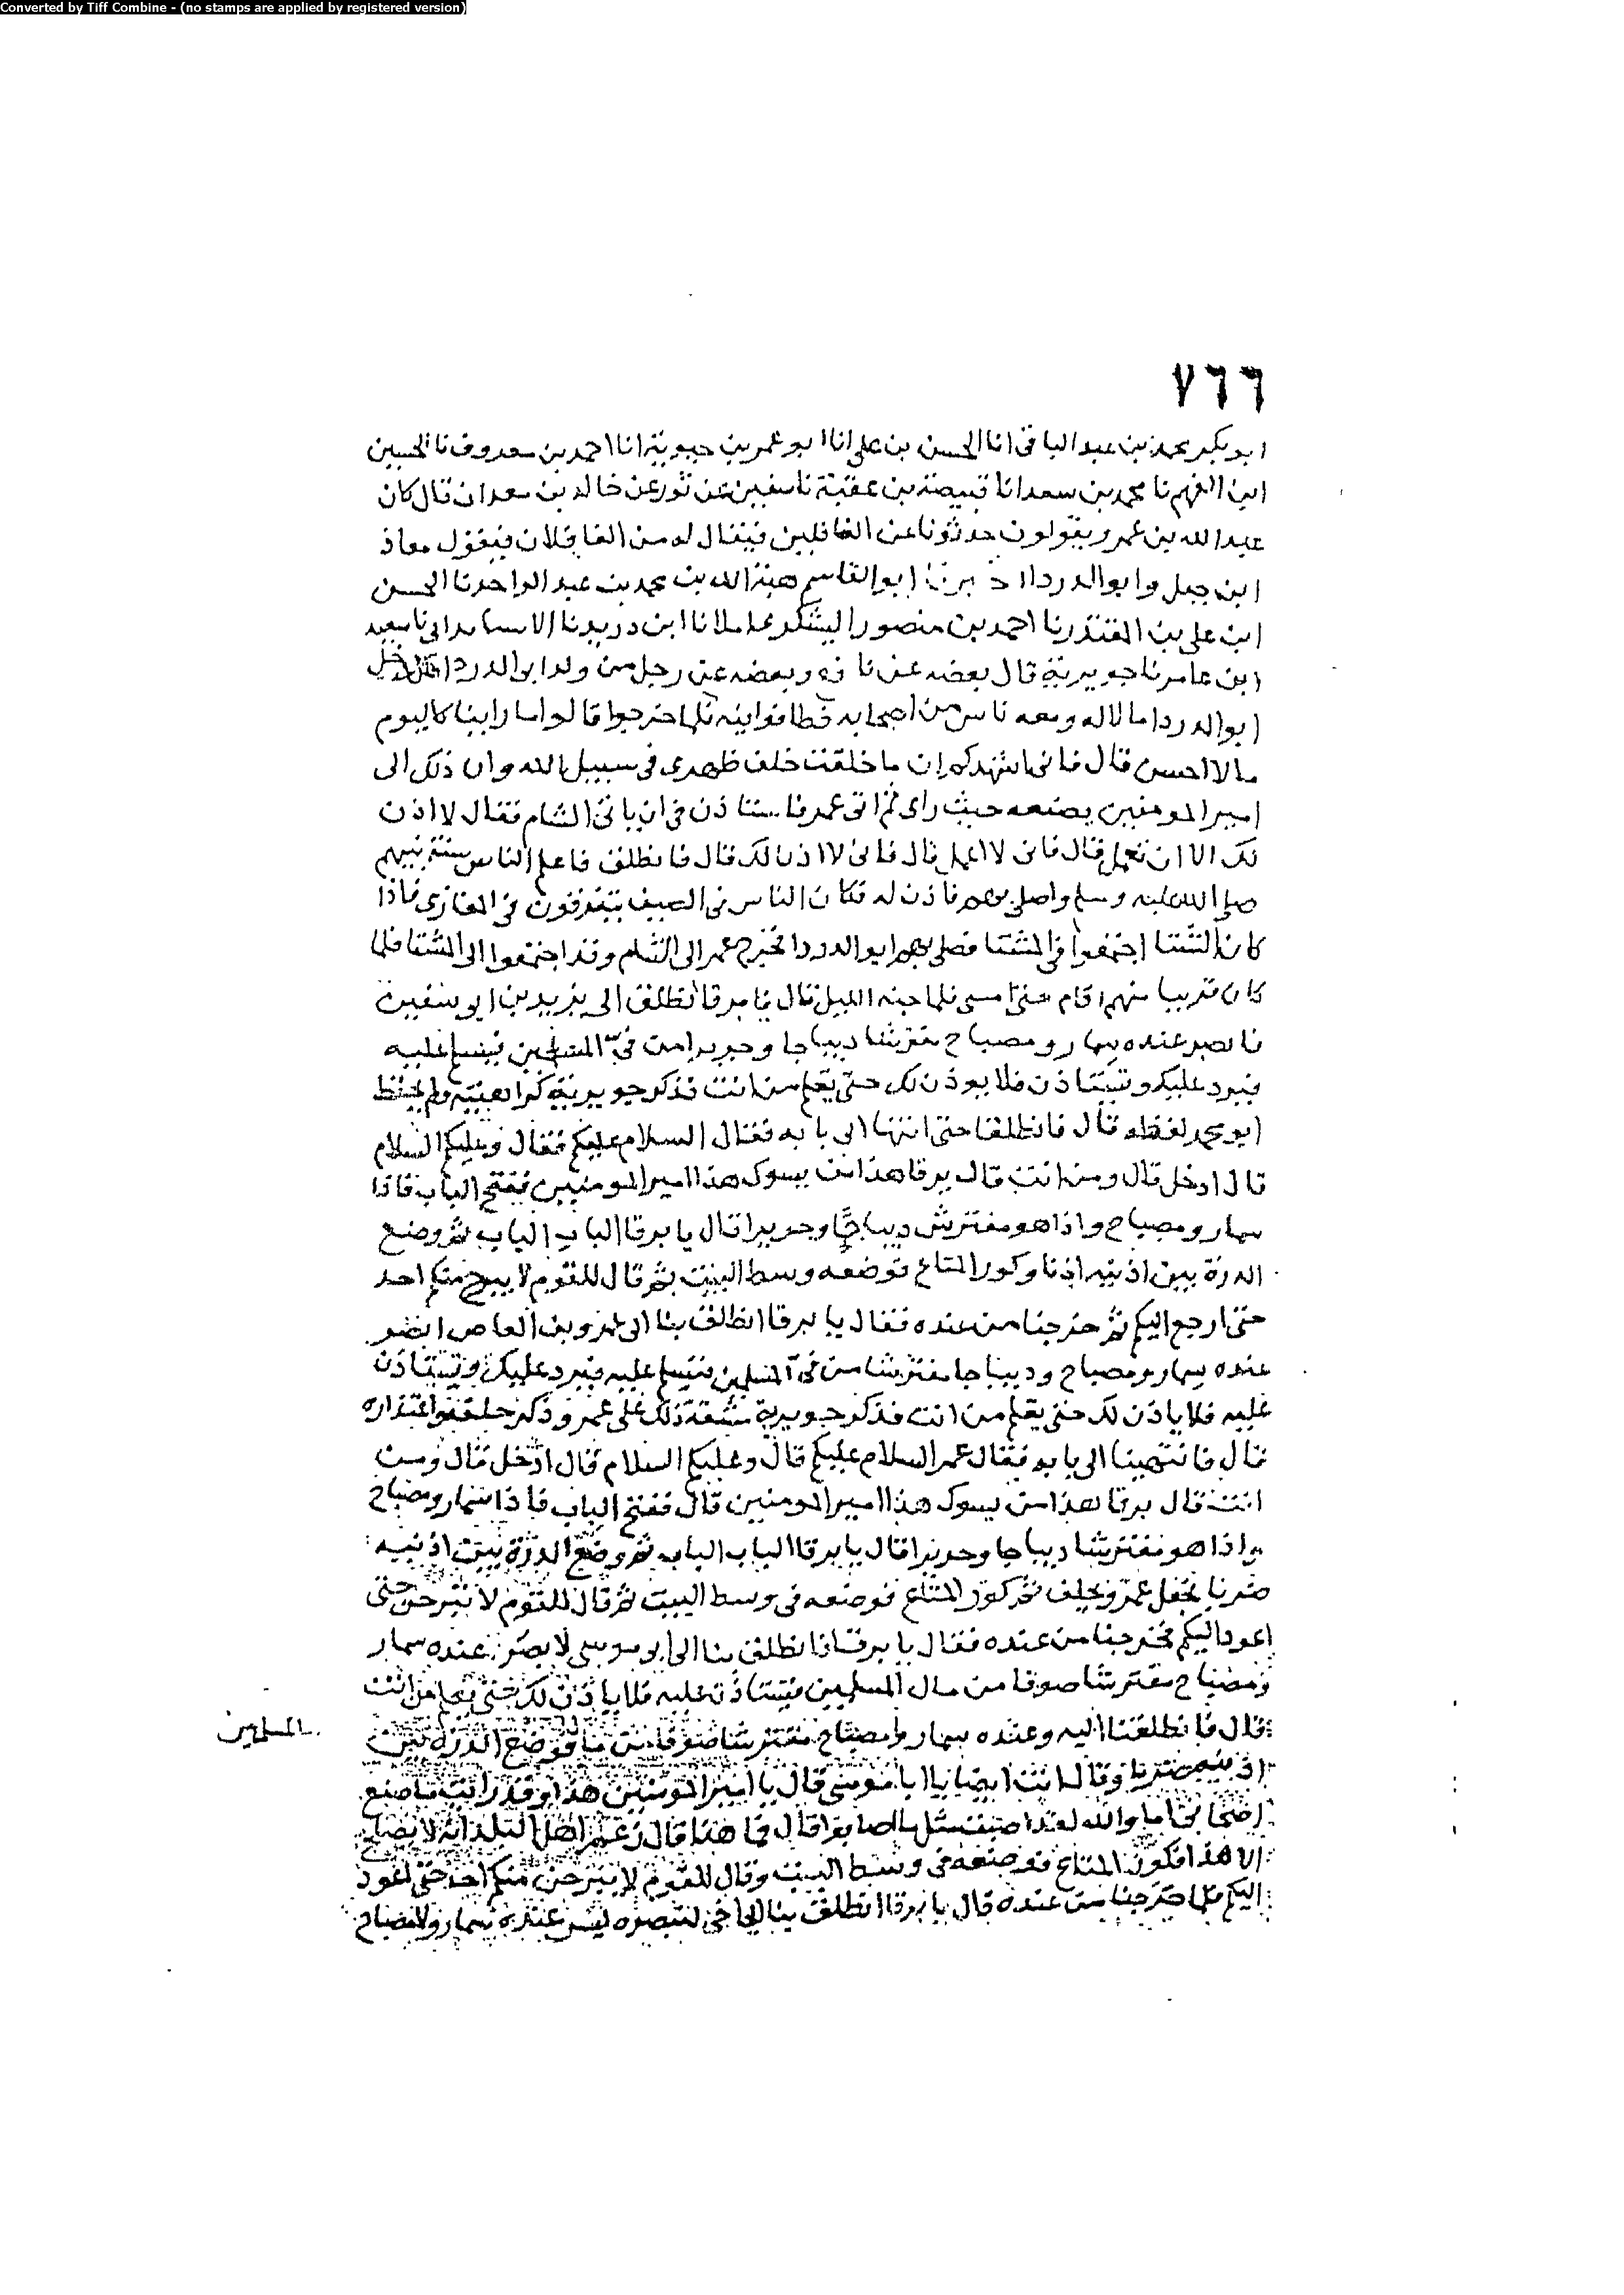 Converted by Tiff Combine - (no stamps are applied by registered version)
٧٦٦
ابو بكر محمد بن عبد الباقى انا الحسن بن على انا ابو عمر بن حيوية انا احمد بن معروف نا الحسين
ابن الفهم نا محمد بن سعد انا قبيصة بن عقبة نا سفين عن ثور عن خالد بن معدان قال كان
عبد الله بن عمرو يقولون حدثونا عن العاقلين فيقال له من العاقلان فيقول معاذ
ابن جبل وابو الدردا اخبرنا ابو القاسم هبة الله بن محمد بن عبد الواحد نا الحسن
ابن على بن المقتدر نا احمد بن منصور اليشكرى املا نا ابن دريد نا الا سعيد
ابن عامر نا جويرية قال بعضه عن نافع وبعضه عن رجل من ولد ابى الدردا قال دخل
ابو الدردا مالا له ومعه ناس من اصحابه فطافوا فيه فلما خرجوا قالوا ما راينا كاليوم
مالا احسن قال فانى اشهدكم ان ما خلفت خلف ظهرى فى سبيل الله وان ذلك الى
امير المومنين يصنعه حيث راى ثم اتى عمر فاستاذن فى ان ياتى الشام فقال لا اذن
لك الا ان تعمل قال فانى لا اعمل قال فانى لا اذن لك قال فانطلق فاعلم الناس سنة نبيهم
صلى الله عليه وسلم واصلى بهم فاذن له فكان الناس فى الصيف يتفرقون فى المغازى فاذا
كان الشتا اجتمعوا فى المشتا فصلى بهم ابو الدردا فخرج عمر الى الشام وقد اجتمعوا الى المشتا فلما
كان قريبا منهم اقام حتى امسى فلما جنه الليل قال يا يرفا انطلق الى يزيد بن ابو سفين
نا بصر عنده سمار ومصباح مفترشا ديباجا وحريرا من فى المسلمين فيسلم عليه
فيرد عليك وتستاذن فلا يوذن لك حتى يعلم من انت فذكر جويرية كراهيته ولم يحفظ
ابو محمد لفظه قال فانطلقنا حتى انتهيا الى بابه فقال السلام عليكم فقال وعليكم السلام
قال ادخل قال ومن انت قال يرفا هذا من يسوك هذا امير المومنين ففتح الباب فاذا
سمار ومصباح واذا هو مفترش ديباجا وحريرا قال يا يرفا الباب الباب ثم وضع
الدرة بين اذنيه وكور المتاع فوضعه وسط البيت ثم قال للقوم لا يبرح منكم احد
حتى ارجع اليكم ثم خرجنا من عنده فقال يا يرفا انطلق بنا الى عمرو بن العاص ابصر
عنده سمار ومصباح وديباجا مفترشا من فى المسلمين فتسلم عليه فيرد عليك وتستاذن
عليه فلا ياذن لك حتى يعلم من انت فذكر جويرية مشقة ذلك على عمر وذكر حلفه واعتذاره
قال فانتهينا الى بابه فقال عمر السلام عليكم قال وعليكم السلام قال ادخل قال ومن
انت قال يرفا هذا من يسوك هذا امير المومنين قال ففتح الباب فاذا سمار ومصباح
واذا هو مفترشا ديباجا وحريرا قال يا يرفا الباب الباب ثم وضع الدرة بين اذنيه
ضربا فجعل عمرو يحلف ثم كور المتاع فوضعه فى وسط البيت ثم قال للقوم لا تبرحن حتى
اعود اليكم فخرجنا من عنده فقال يا يرفا انطلق بنا الى ابو موسى لا بصر عنده سمار
ومصباح مفترشا صوفا من مال المسلمين فتستاذن عليه فلا ياذن لك حتى يعلم من انت
قال فانطلقنا اليه وعنده سمار ومصباح مفترشا صوفا فوضع الدرة بين
المسلمين
اذنيه ضربا وقال انت ايضا يا ابا موسى قال يا امير المومنين هذا وقد رايت ما صنع
اصحابى اما والله لقد اصبت مثل ما اصابوا قال فما هذا قال زعم اهل البلد انه لا يصلح
الا هذا فكور المتاع فوضعه فى وسط البيت وقال للقوم لا يبرحن منكم احد حتى اعود
اليكم فلما خرجنا من عنده قال يا يرفا انطلق بنا الى اخى لنبصره ليس عنده سمار ولا مصباح